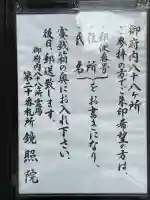 御府内八十八ヶ所
ご参拝の方でご朱印希望の方は、
・郵便番号
・住所
・氏名
をお書きになり、
賽銭箱の奥にお入れ下さい。
後日、郵送致します。
御府内八十八ヶ所霊場
第二十番札所 鏡照院